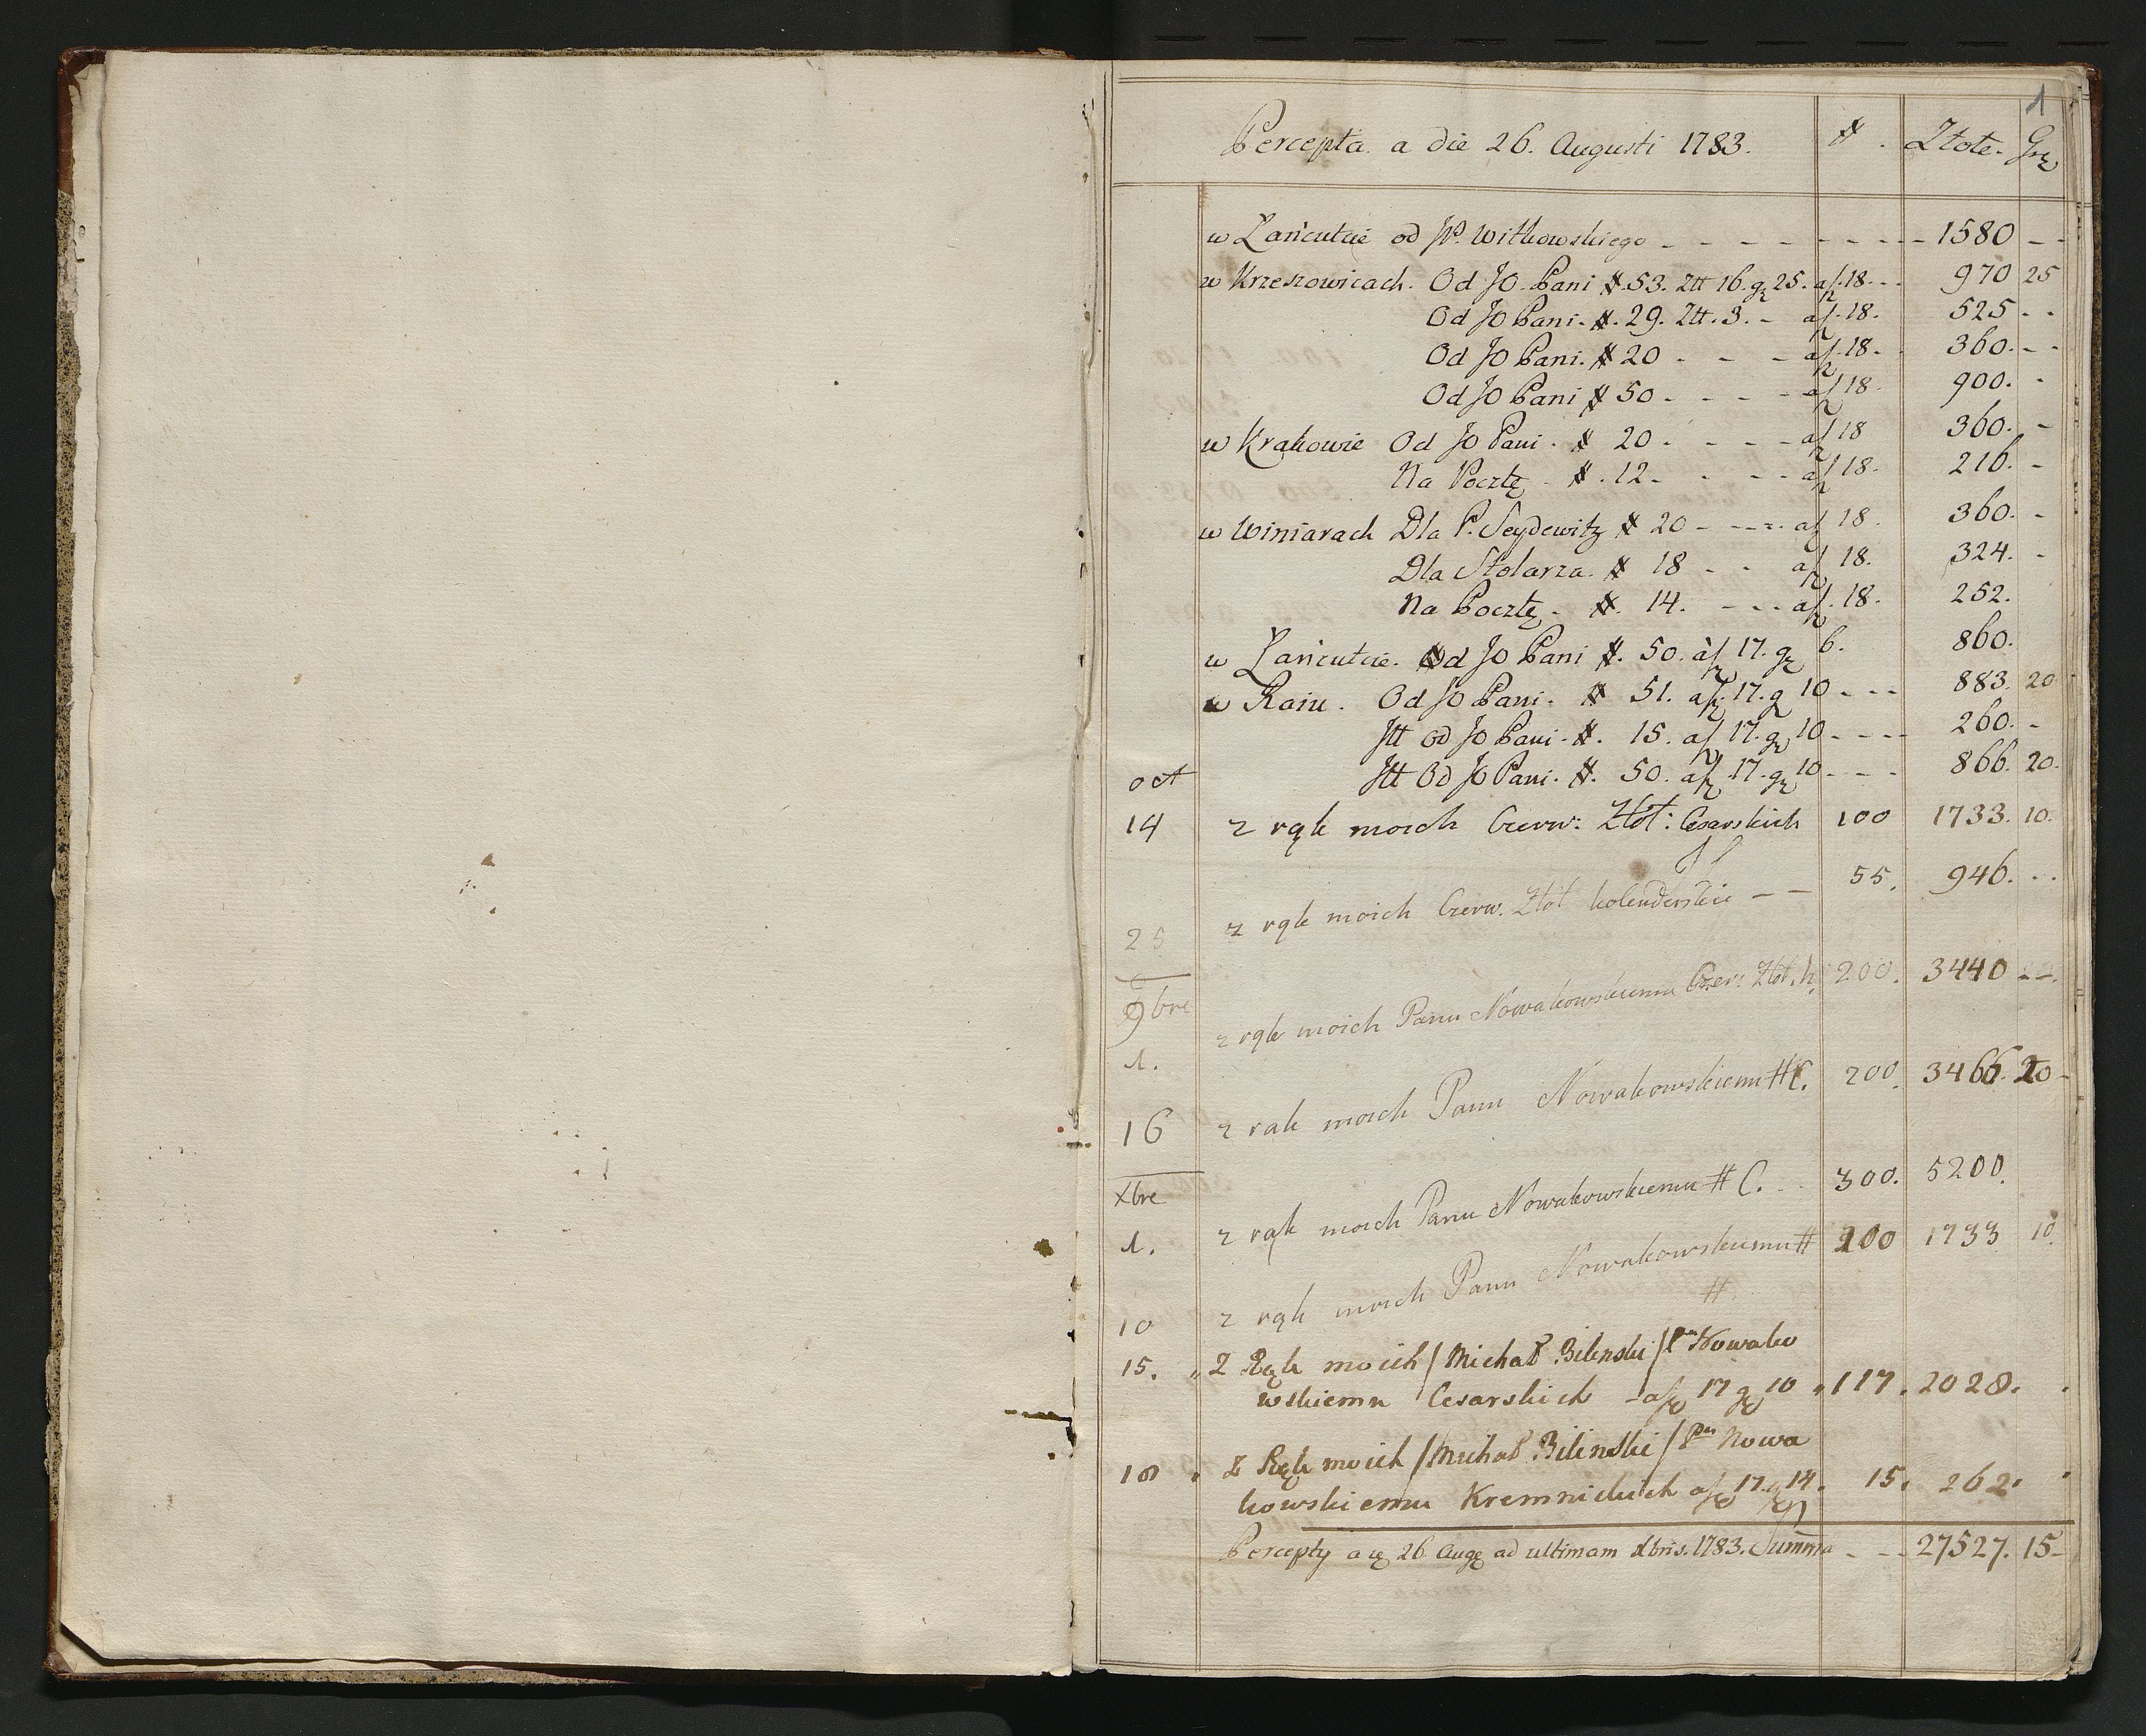 1
Percepta a die 26. Augusti 1783. # . Złote. Grz
w Łańcutcie od JP. Witkowskiego - - - - - - - - 1580 - -
w Krzeszowicach. Od JO. Pani #. 53. Ztt 16. gz 25. af. 18. - - 970 25
Od JO Pani. #. 29. Ztt. 3. - af. 18. 525 - -
Od JO Pani. # 20 - - - af. 18. 360. - -
Od JO Pani # 50 - - - - af 18. 900. -
w Krakowie Od JO Pani. # 20 - - - - af 18 360. -
Na Pocztę - #. 12. - - - af 18. 216. -
w Winiarach Dla P. Seydewitz # 20 - - - - af 18. 360. -
Dla Stolarza. # 18 - - af 18. 324. -
Na Pocztę. #. 14. - - - af. 18. 252.
w Łańcutcie. Od JO Pani #. 50. af 17. gz 6. 860.
w Raiu. Od JO Pani. # 51. af. 17. g 10 - - - 883. 20
Itt od JO Pani. #. 15. af 17. gz 10 - - - - 260. -
oct Itt Od JO Pani. #. 50. af 17. gz 10 - - - 866. 20.
14 z rąk moich Czerw: Złot: Cesarskich 100 1733. 10.
25 z rąk moich Czerw. Złot holenderskie - - 55. 946. . .
9bre
1. z rąk moich Panu Nowakowskiemu Czer: Złot. h. 200. 3440 - -
16 z rak moich Panu Nowakowskiemu # C. 200. 3466. 20 -
xbre
1. z rąk moich Panu Nowakowskiemu # C. . . 300. 5200.
10 z rąk moich Panu Nowakowskiemu # 100 1733 10.
#
15. " Z Rąk moich / Michał Bilenski / Pu Nowako
wskiemu Cesarskich - af 17 gz 10 " 117. 2028. .
18 " Z Rąk moich / Michał Bilinski / Pu Nowa
kowskiemu Kremnickich af 17. gz 14. 15. 262. "
Percepty a 26 Aug ad ultimam Xbris. 1783. Summa - - - 27527. 15-